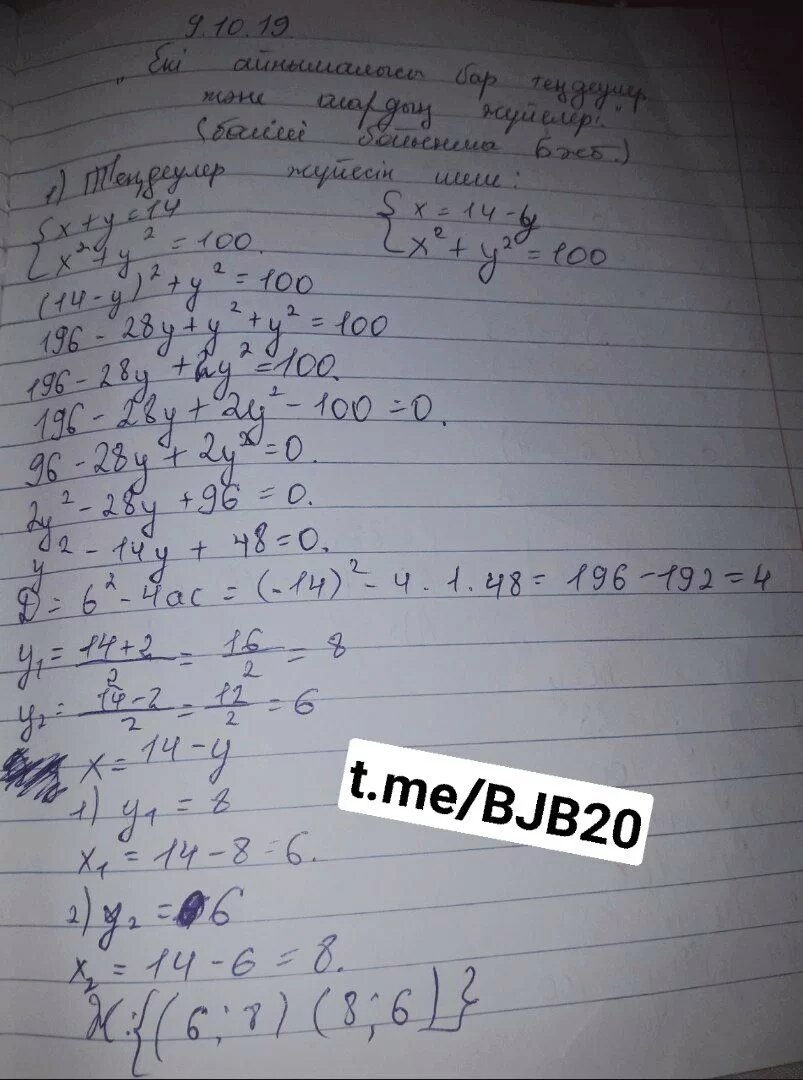 9.10.19
"Екі айнымалысы бар теңдеулер
және олардың жүйелері."
(бөлімі бойынша БЖБ.)
1) Теңдеулер жүйесін шеш:
{x+y=14
x²+y²=100.
{x=14-y
x²+y²=100
(14-y)²+y²=100
196-28y+y²+y²=100
196-28y+2y²=100.
196-28y+2y²-100=0.
96-28y+2y²=0.
2y²-28y+96=0.
y²-14y+48=0.
D=b²-4ac=(-14)²-4·1·48=196-192=4
y₁=14+2/2=16/2=8
y₂=14-2/2=12/2=6
x=14-y
1) y₁=8
x₁=14-8=6.
2) y₂=6
x₂=14-6=8.
Ж:{(6;8)(8;6)}
t.me/BJB20